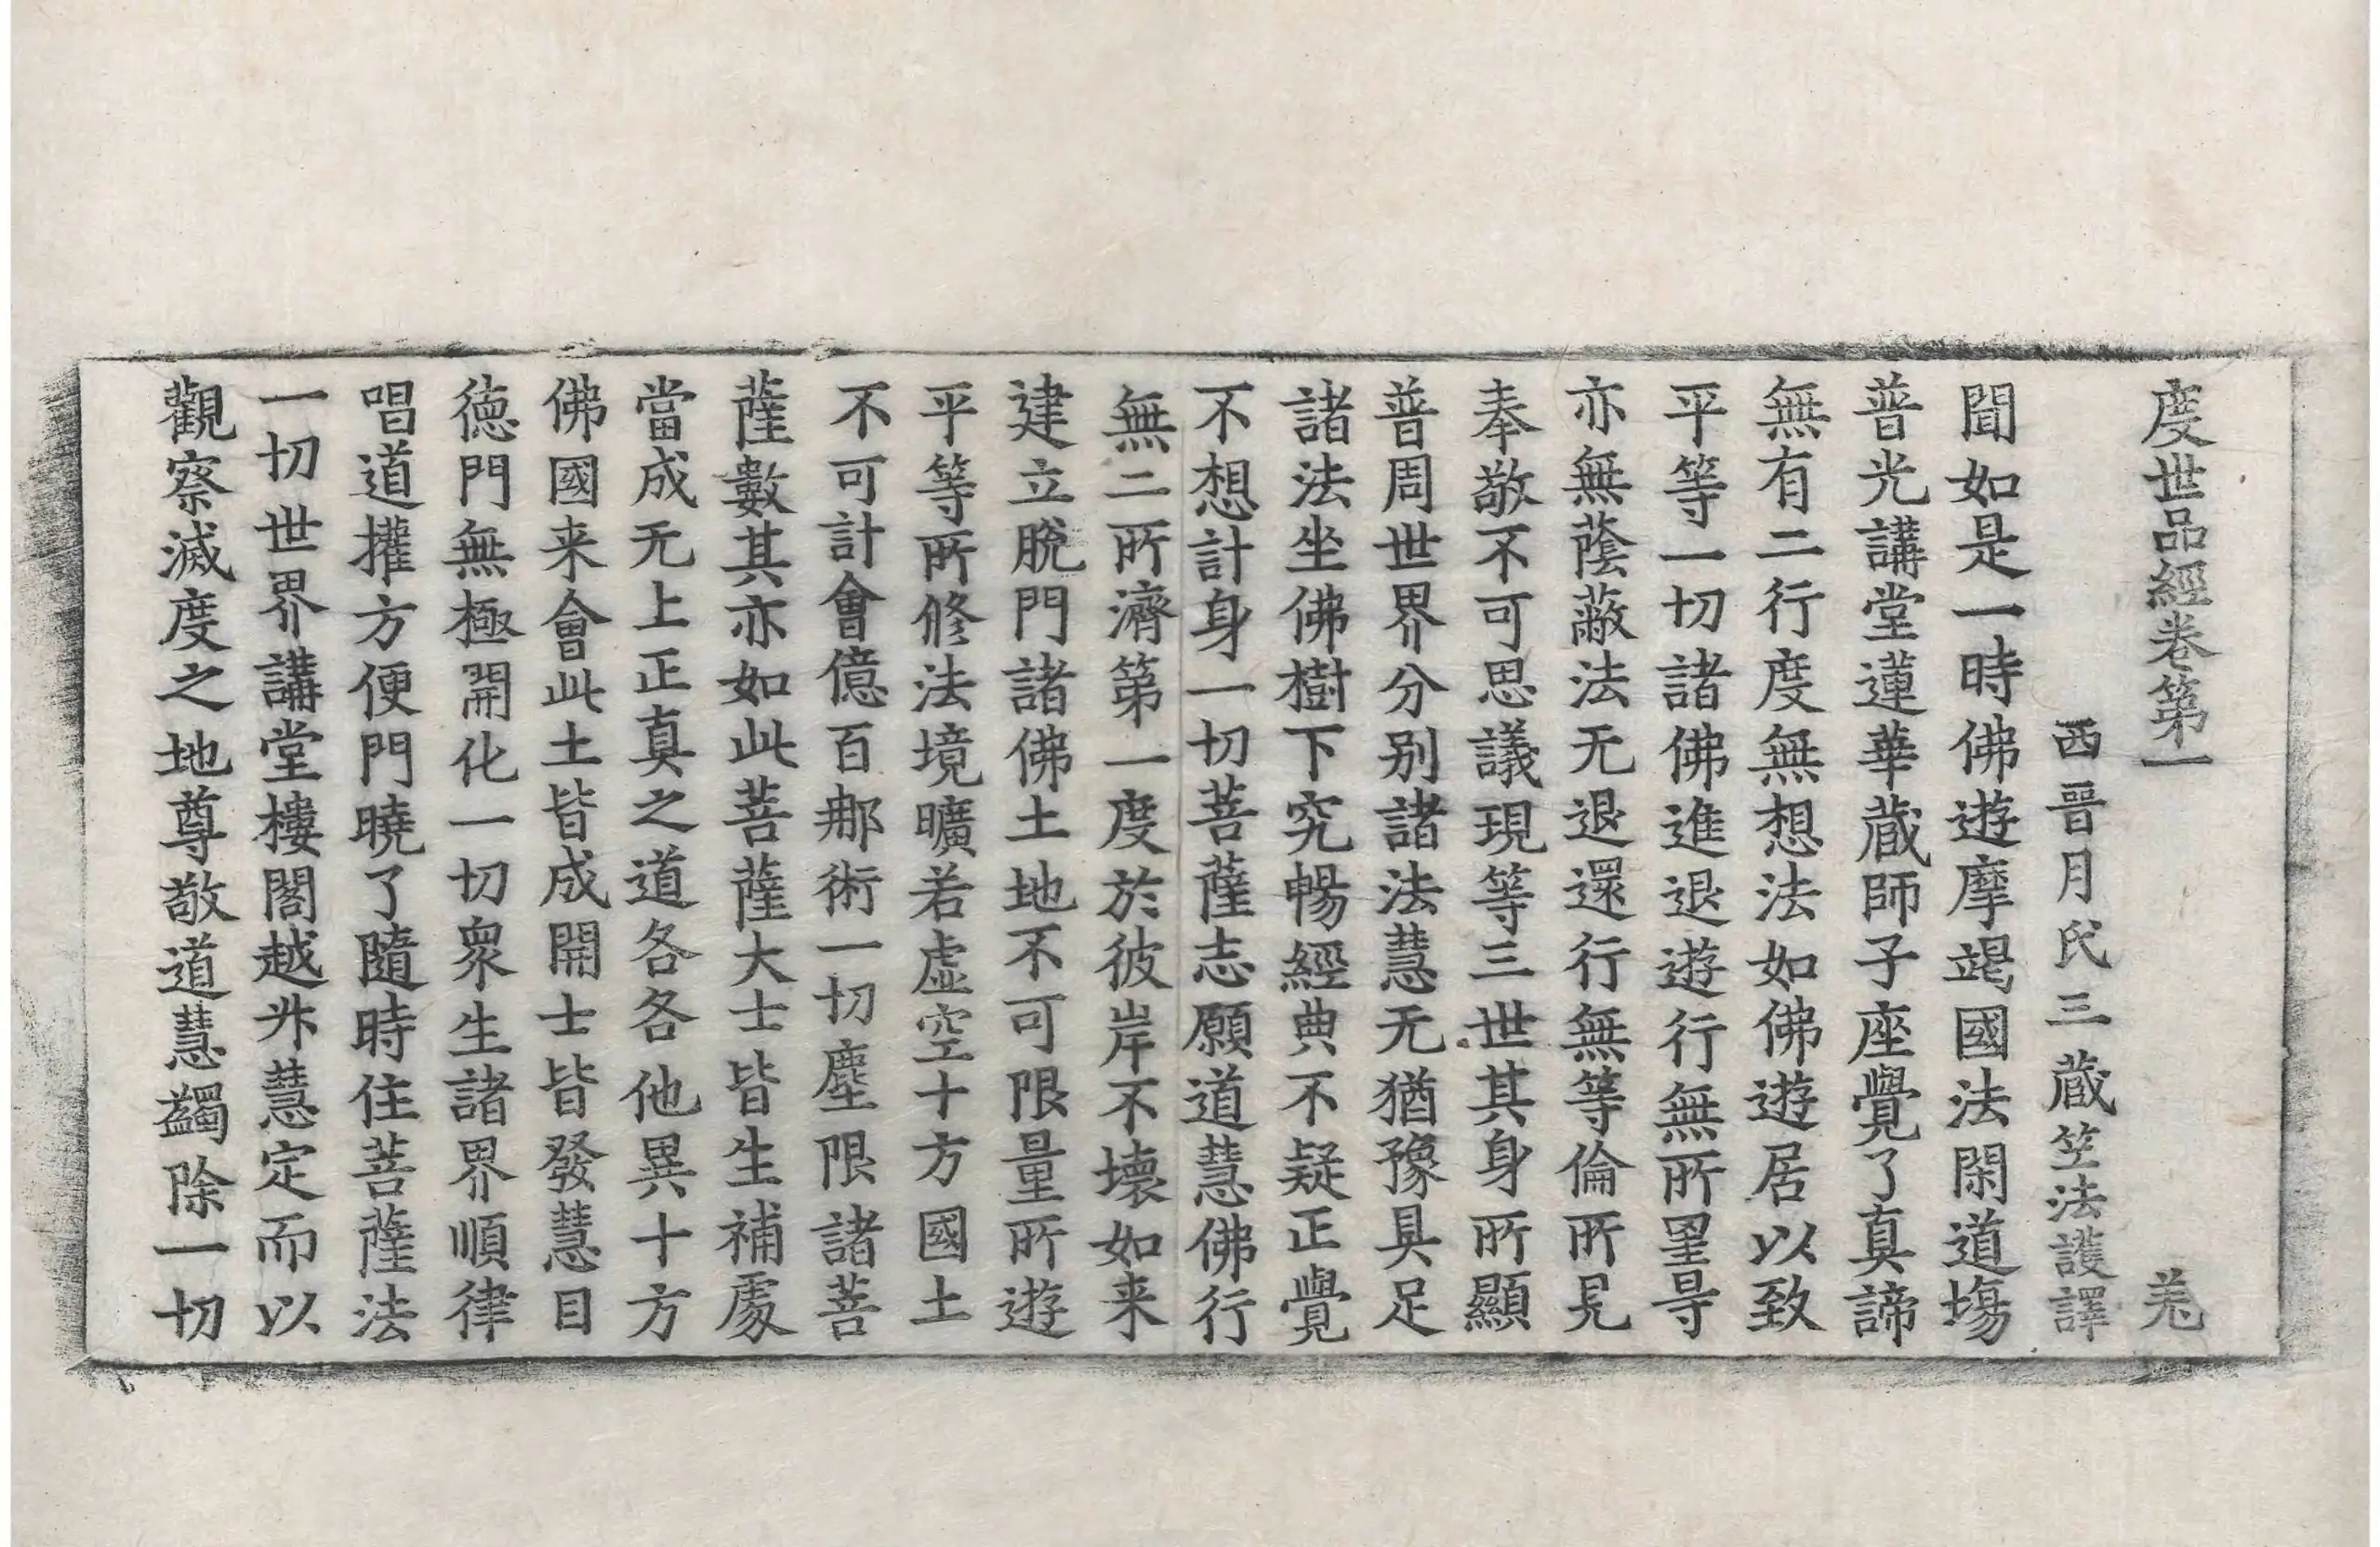 度世品經卷第一 羗
西晉月氏三藏竺法護譯
聞如是一時佛遊摩竭國法閑道場
普光講堂蓮華藏師子座覺了真諦
無有二行度無想法如佛遊居以致
平等一切諸佛進退遊行無所罣㝵
亦無蔭蔽法无退還行無等倫所見
奉敬不可思議現等三世其身所顯
普周世界分别諸法慧无猶豫具足
諸法坐佛樹下究暢經典不疑正覺
不想計身一切菩薩志願道慧佛行
無二所濟第一度於彼岸不壞如来
建立脫門諸佛土地不可限量所遊
平等所修法境曠若虛空十方國土
不可計會億百郍術一切塵限諸菩
薩數其亦如此菩薩大士皆生補處
當成无上正真之道各各他異十方
佛國来會此土皆成開士皆發慧目
德門無極開化一切衆生諸界順律
唱道權方便門曉了隨時住菩薩法
一切世界講堂樓閣越升慧定而以
觀察滅度之地尊敬道慧蠲除一切